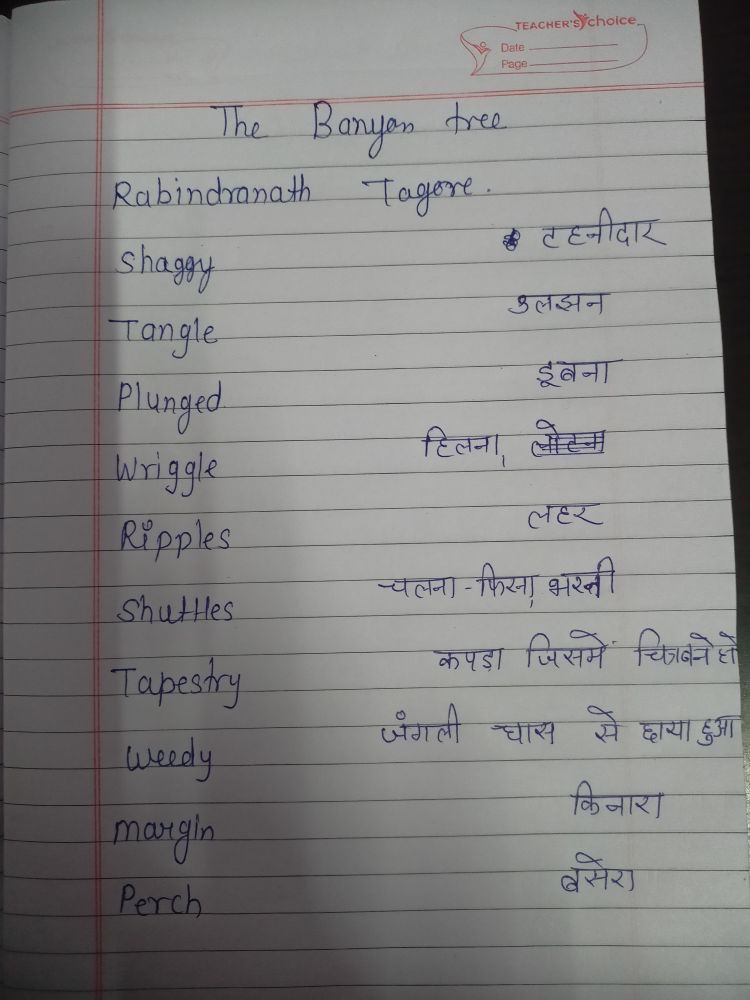 TEACHER'S choice
Date
Page
The Banyan tree
Rabindranath Tagore.
Shaggy टहनीदार
Tangle उलझन
Plunged डूबना
Wriggle हिलना,
Ripples लहर
Shuttles चलना-फिरना, भरनी
Tapestry कपड़ा जिसमें चित्र बने हो
Weedy जंगली घास से छाया हुआ
margin किनारा
Perch बसेरा